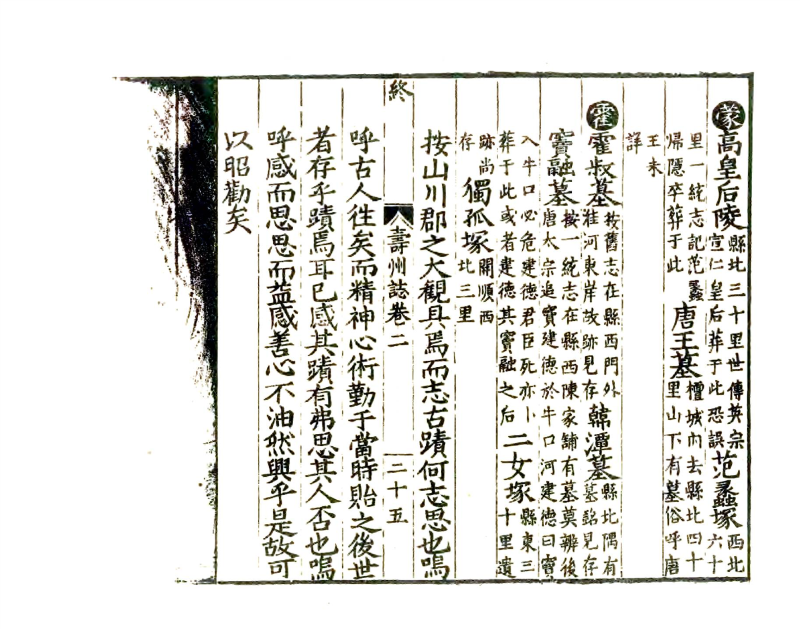 蒙高皇后陵縣北三十里世傳英宗宣仁皇后葬于此恐誤范蠡塚西北六十
里一統志記范蠡歸隱卒葬于此唐王墓檀城內去縣北四十里山下有墓俗呼唐
王未詳
霍霍叔墓按舊志在縣西門外淮河東岸故跡見存韓潭墓縣北隅有墓銘見存
竇融墓按一統志在縣西陳家舖有墓莫辨後唐太宗追竇建德於牛口河建德曰竇
入牛口必危建德君臣死亦卜葬于此或者建德其竇融之后二女塚縣東三十里遺
跡尚存獨孤塚開順西北三里
按山川郡之大觀具焉而志古蹟何志思也嗚
終 壽州誌卷二 二十五
呼古人往矣而精神心術勤于當時貽之後世
者存乎蹟焉耳已感其蹟有弗思其人否也嗚
呼感而思思而益感善心不油然興乎是故可
以昭勸矣